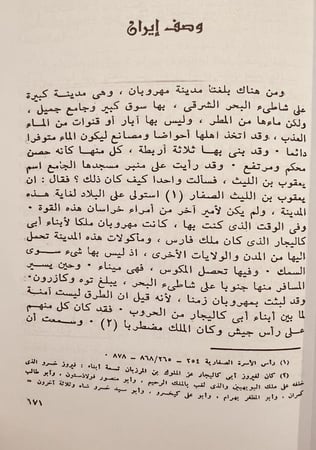 وصف إيران
ومن هناك بلغنا مدينة مهروبان ، وهى مدينة كبيرة
على شاطىء البحر الشرقى ، بها سوق كبير وجامع جميل ،
ولكن ماءها من المطر ، وليس بها آبار أو قنوات من الماء
العذب ، وقد اتخذ أهلها أحواضا ومصانع ليكون الماء متوفرا
دائما . وقد بنى بها ثلاثة أربطة ، كل منها كأنه حصن
محكم ومرتفع . وقد رأيت على منبر مسجدها الجامع اسم
يعقوب بن الليث ، فسألت واحدا كيف كان ذلك ؟ فقال : ان
يعقوب بن الليث الصفار (١) استولى على البلاد لغاية هذه
المدينة ، ولم يكن لأمير آخر من أمراء خراسان هذه القوة .
وفى الوقت الذى كنت بها ، كانت مهروبان ملكا لأبناء أبى
كاليجار الذى كان ملك فارس ، ومأكولات هذه المدينة تحمل
اليها من المدن والولايات الأخرى ، اذ ليس بها شىء سوى
السمك . وفيها تحصل المكوس ، فهى ميناء . وحين يسير
المسافر منها جنوبا على شاطىء البحر ، يبلغ توه وكازرون .
وقد لبثت بمهروبان زمنا ، لأنه قيل ان الطرق ليست آمنة
لما بين أبناء أبى كاليجار من الحروب . فقد كان كل منهم
على رأس جيش وكان الملك مضطربا (٢) . وسمعت أن
(١) رأس الأسرة الصفارية ٢٥٤ - ٢٦٥/٨٦٨ - ٨٧٨ .
(٢) كان لفيروز أبى كاليجار عز الملوك بن المرزبان تسعة أبناء : فيروز خسرو الذى
خلفه على ملك البويهيين والذى لقب بالملك الرحيم ، وأبو منصور فولاستون ، وأبو طالب
كمران ، وأبو المظفر بهرام ، وأبو على كيخسرو ، وأبو سعيد خسرو شاه وثلاثة آخرون =
١٧١